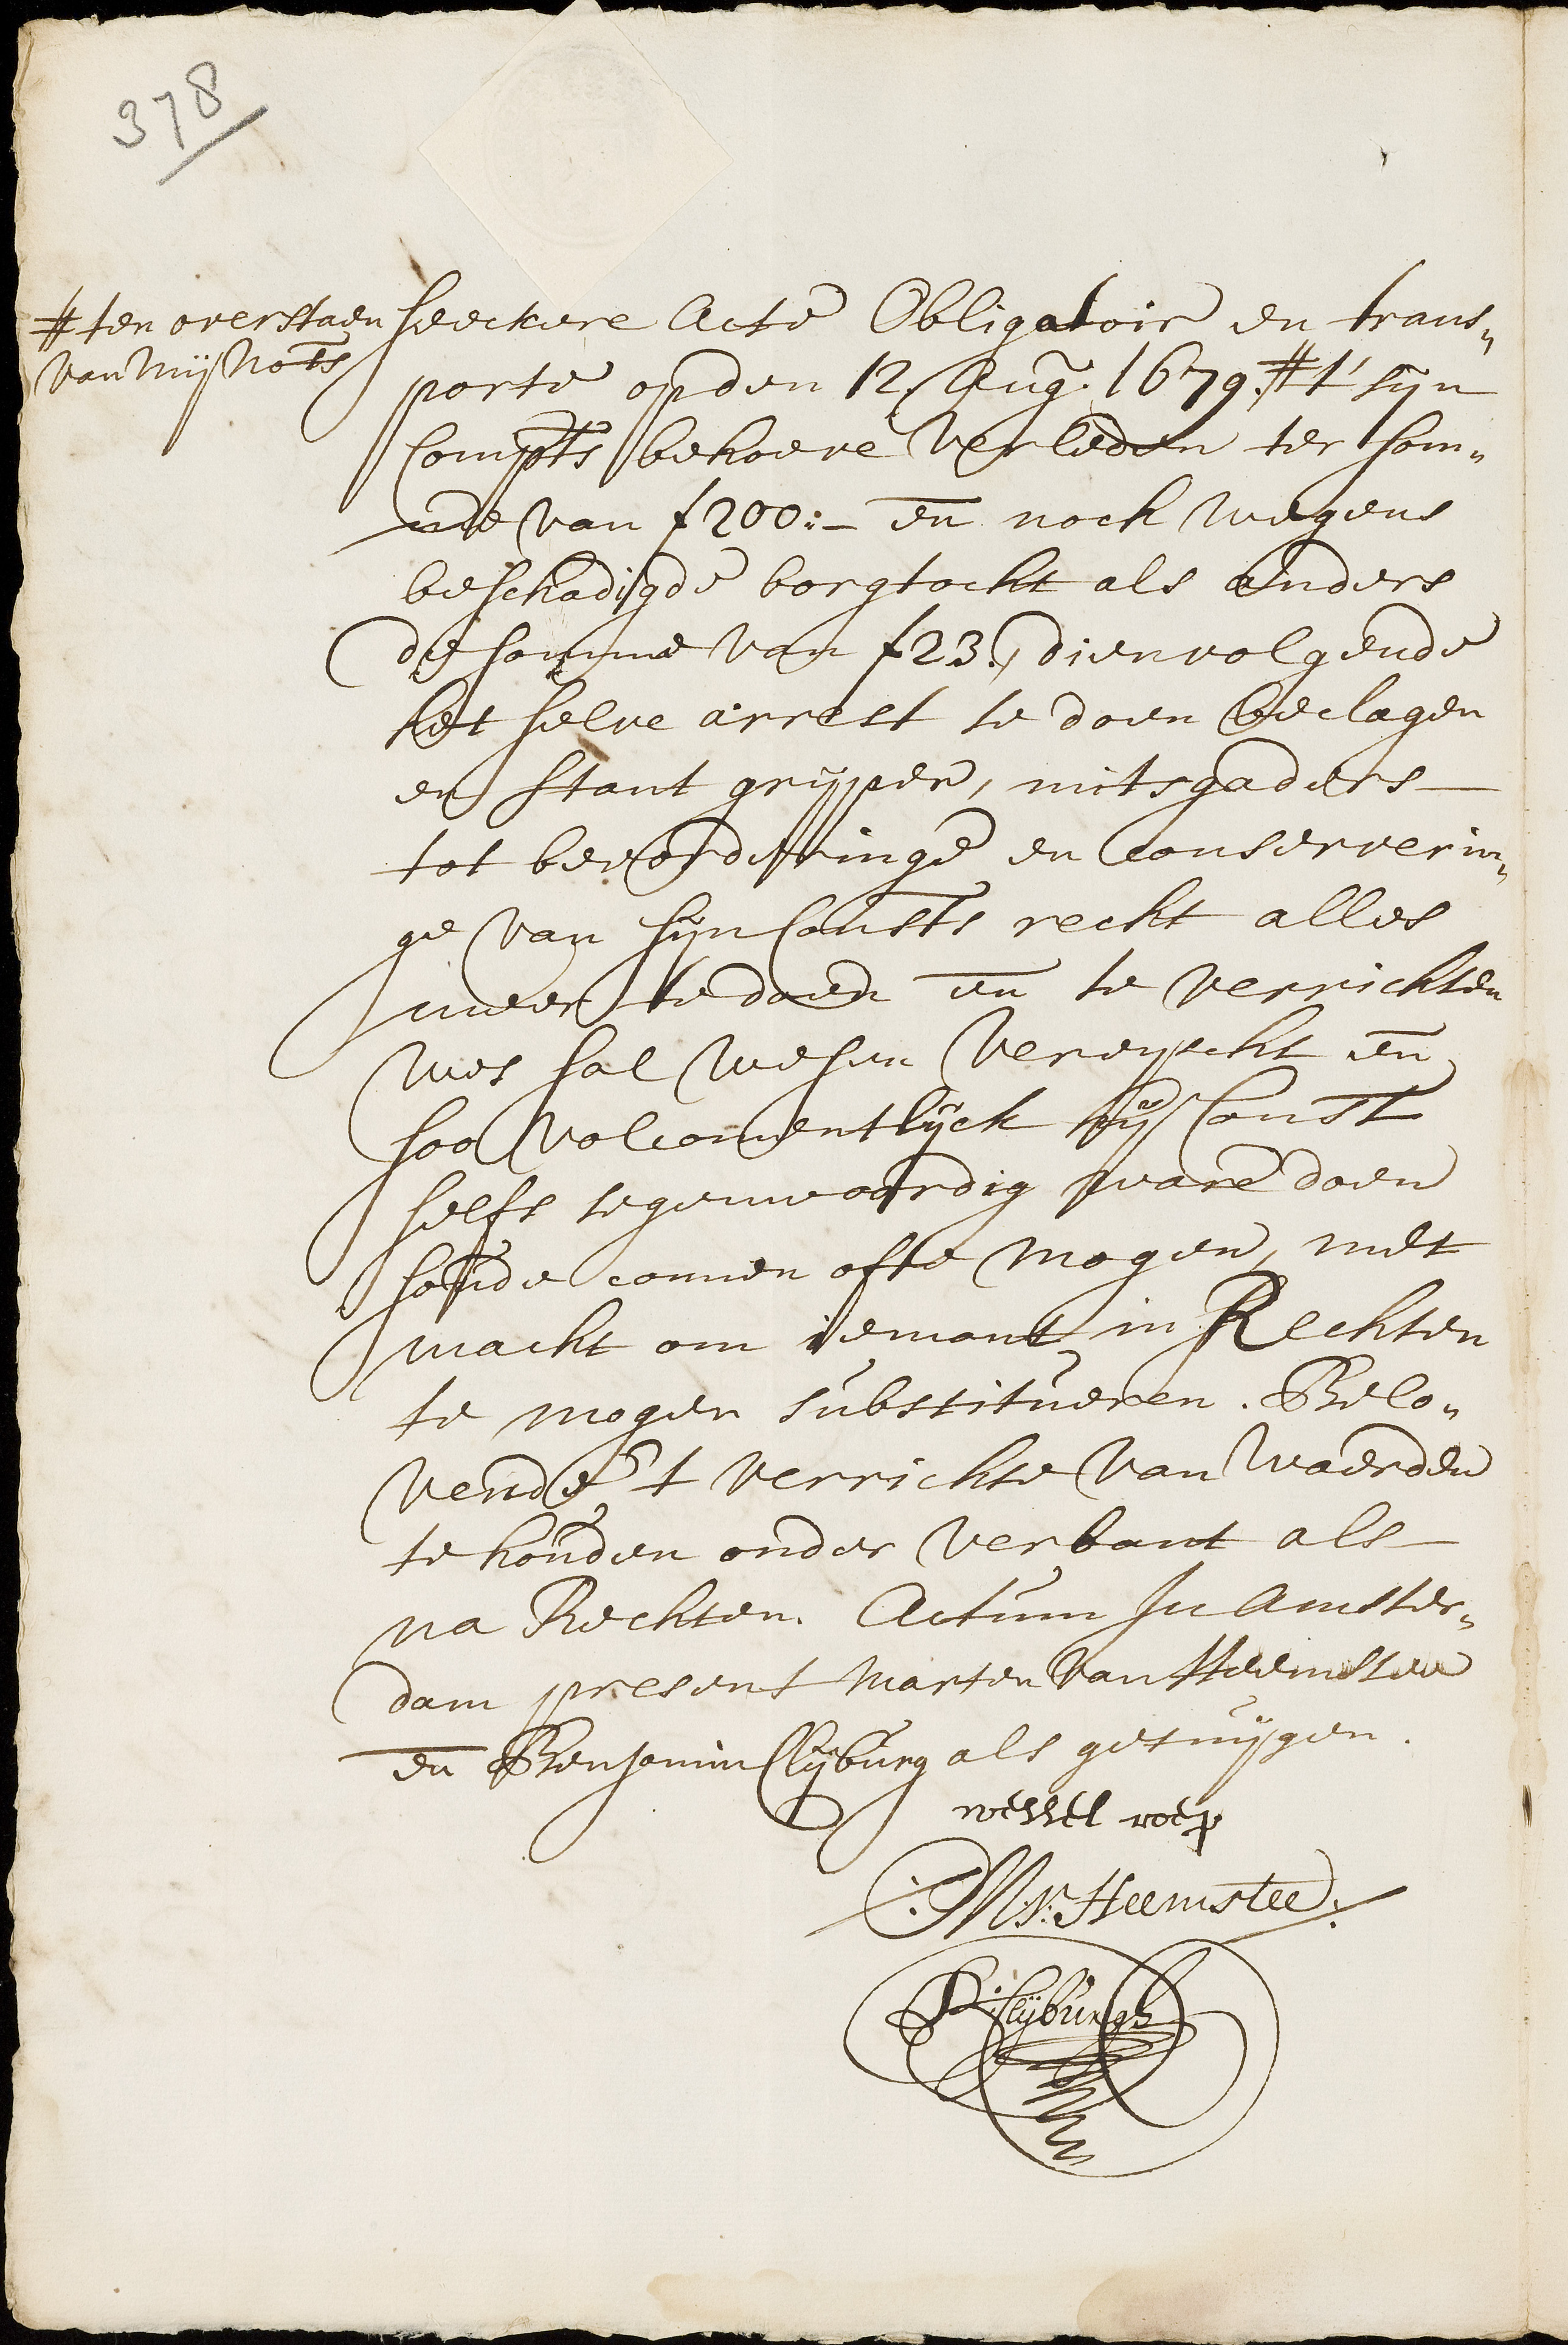 378
# ten overstaen
van Mij Nots
seeckere Acte Obligatoir en trans„
porte op den 12 Aug. 1679. # t' sijn
Compts behoeve verleden ter som„
me van ƒ200:- en noch wegens
beschadigde borgtocht als anders
de somme van ƒ23., dienvolgende
het selve arrest te doen beclagen
en stant grijpen, mitsgaders
tot bevorderinge en conserverin„
ge van sijn Consts recht alles
meer te doen en te verrichten
wes sal wesen vereyscht en
soo volcomentlijck hij Const
selfs tegenwoordig ware doen
soude connen ofte mogen, met
macht om iemant in Rechten
te mogen substitueren. Belo„
vende 't verrichte van waerden
te houden onder verbant als
na Rechten. Actum In Amster„
dam present Marten van Heemstee
en Benjamin Clijburg als getuijgen.
wessel woep
M.V. Heemstee
B: Clijburgh